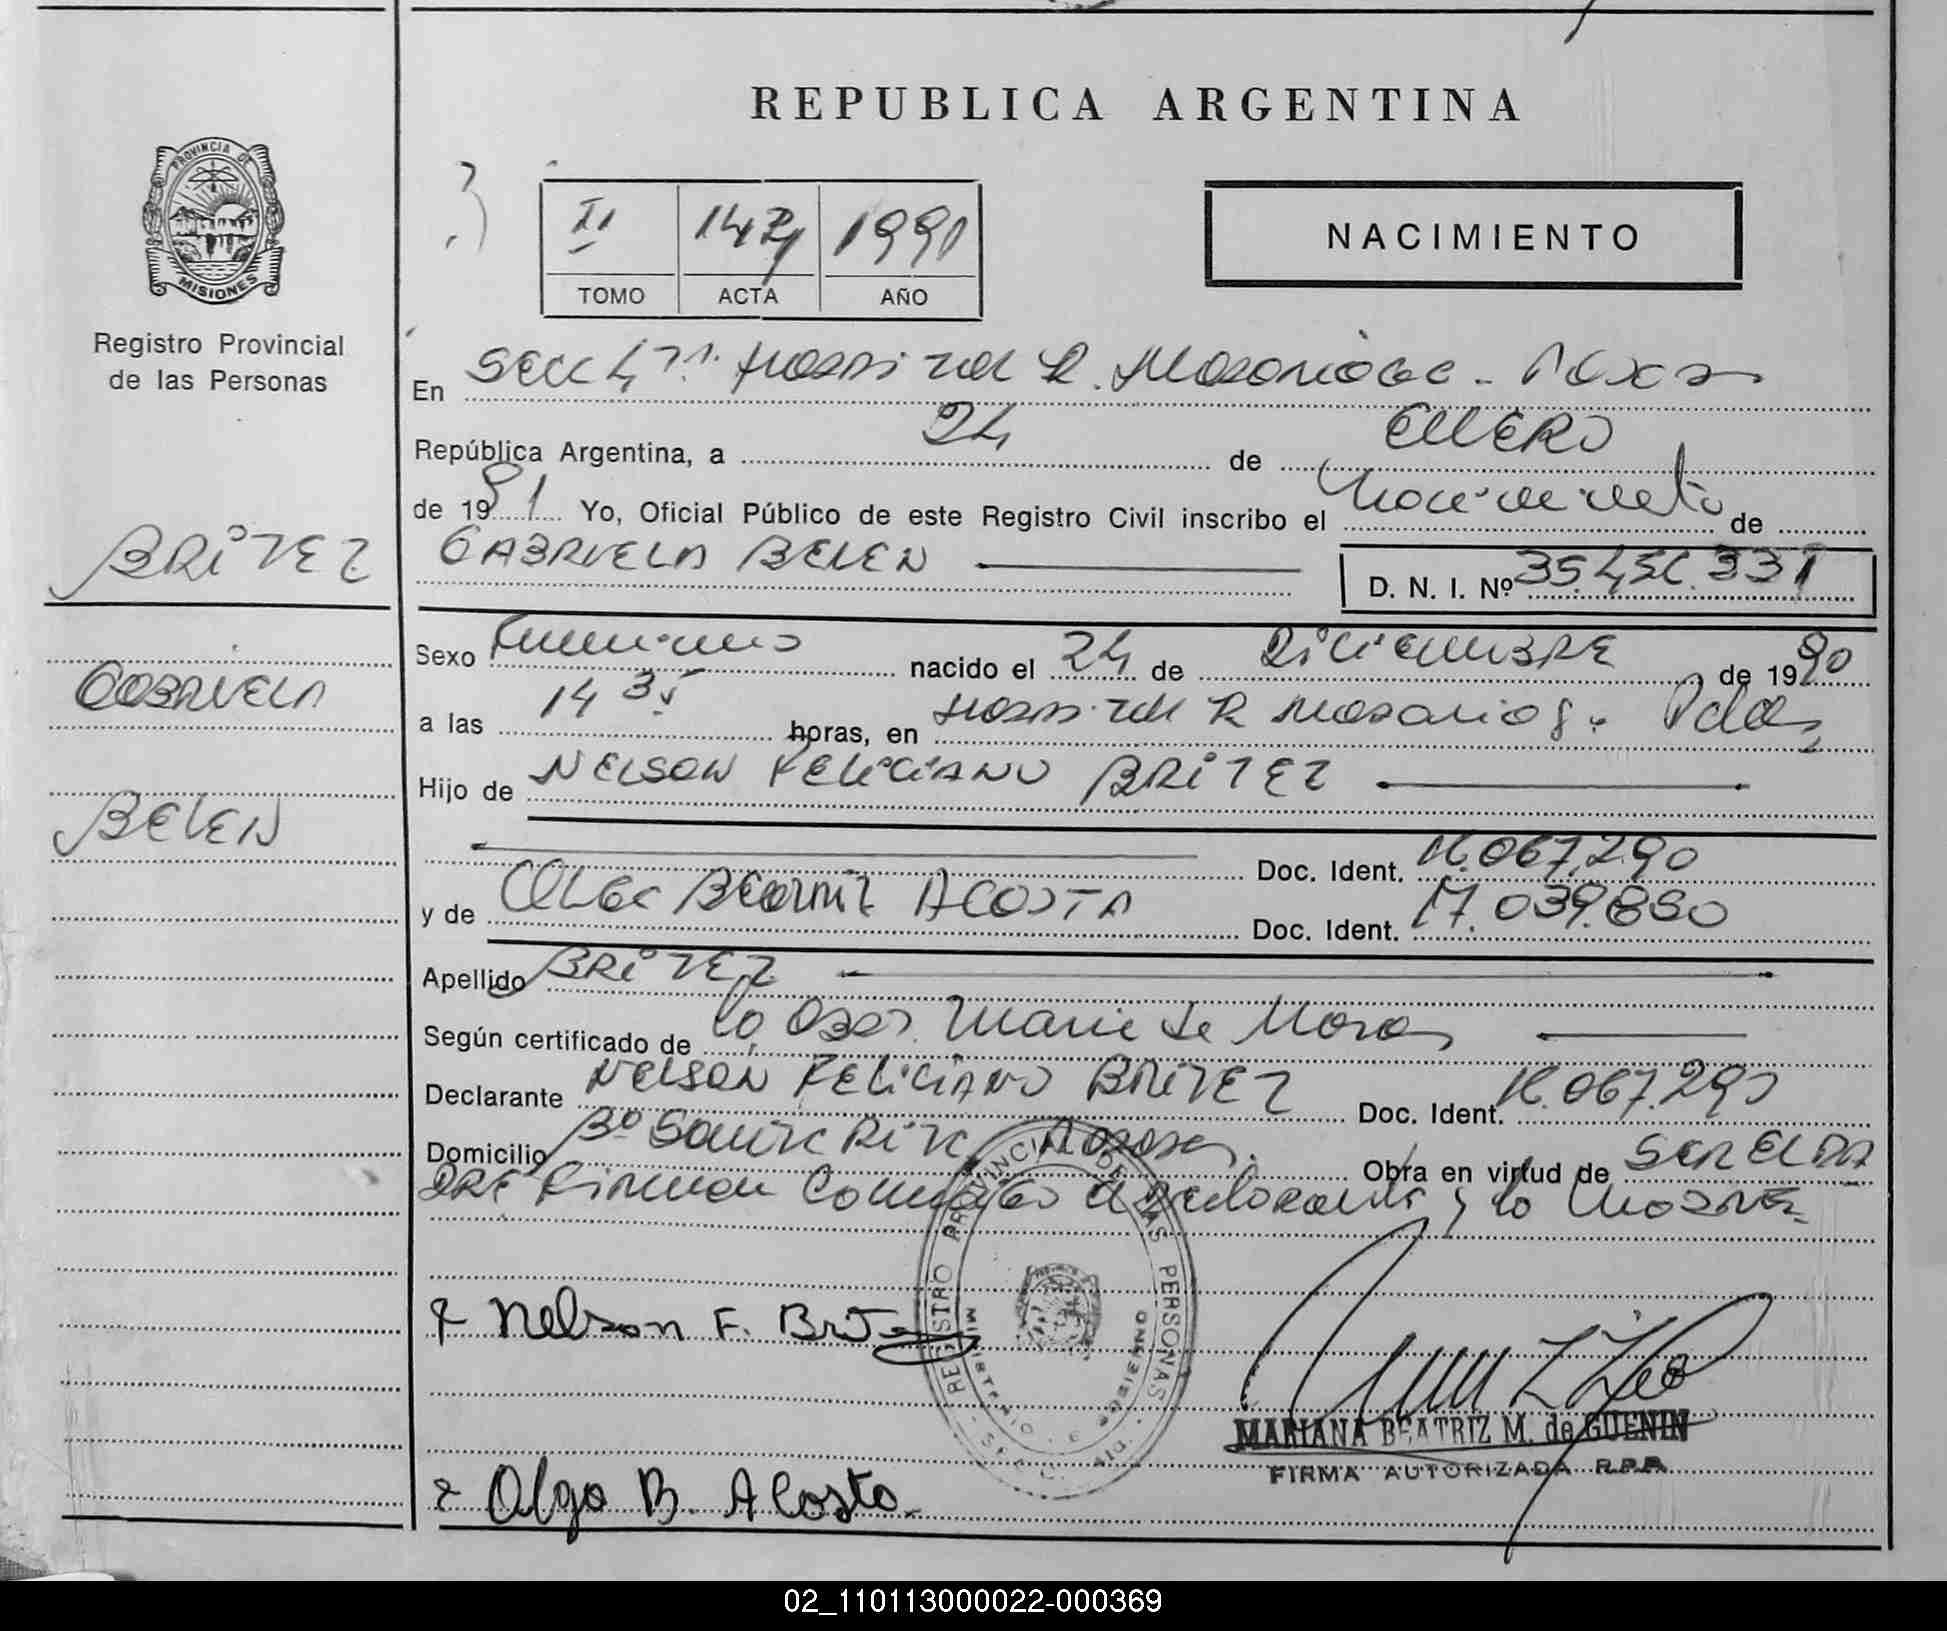 REPUBLICA ARGENTINA
PROVINCIA DE
MISIONES
Registro Provincial
de las Personas
II 1991
TOMO ACTA AÑO
NACIMIENTO
En Secc 4ta. Hospital R. Madariaga - Posadas
República Argentina, a 24 de ENERO
de 1991 Yo, Oficial Público de este Registro Civil inscribo el Nacimiento de
GABRIELA BELEN
D. N. I. Nº 35.456.331
BRITEZ
GABRIELA
BELEN
Sexo Femenino nacido el 24 de DICIEMBRE de 1990
a las 14 35 horas, en Hospital R Madariaga. Pdas
Hijo de NELSON FELICIANO BRITEZ
Doc. Ident. 16.067.290
y de Olga Beatriz ACOSTA Doc. Ident. 17.039.880
Apellido BRITEZ
Según certificado de la Obst. Maria de
Declarante NELSON FELICIANO BRITEZ Doc. Ident. 16.067.290
Domicilio Bº Santa Rita Posadas. Obra en virtud de SER EL PA
DRE Firman Conmigo el declarante y la Madre
REGISTRO PROVINCIAL DE LAS PERSONAS
MISIONES
& Nelson F. Britez
MARIANA BEATRIZ M. de GUENIN
FIRMA AUTORIZADA R.P.P.
& Olga B. Acosta
02_110113000022-000369